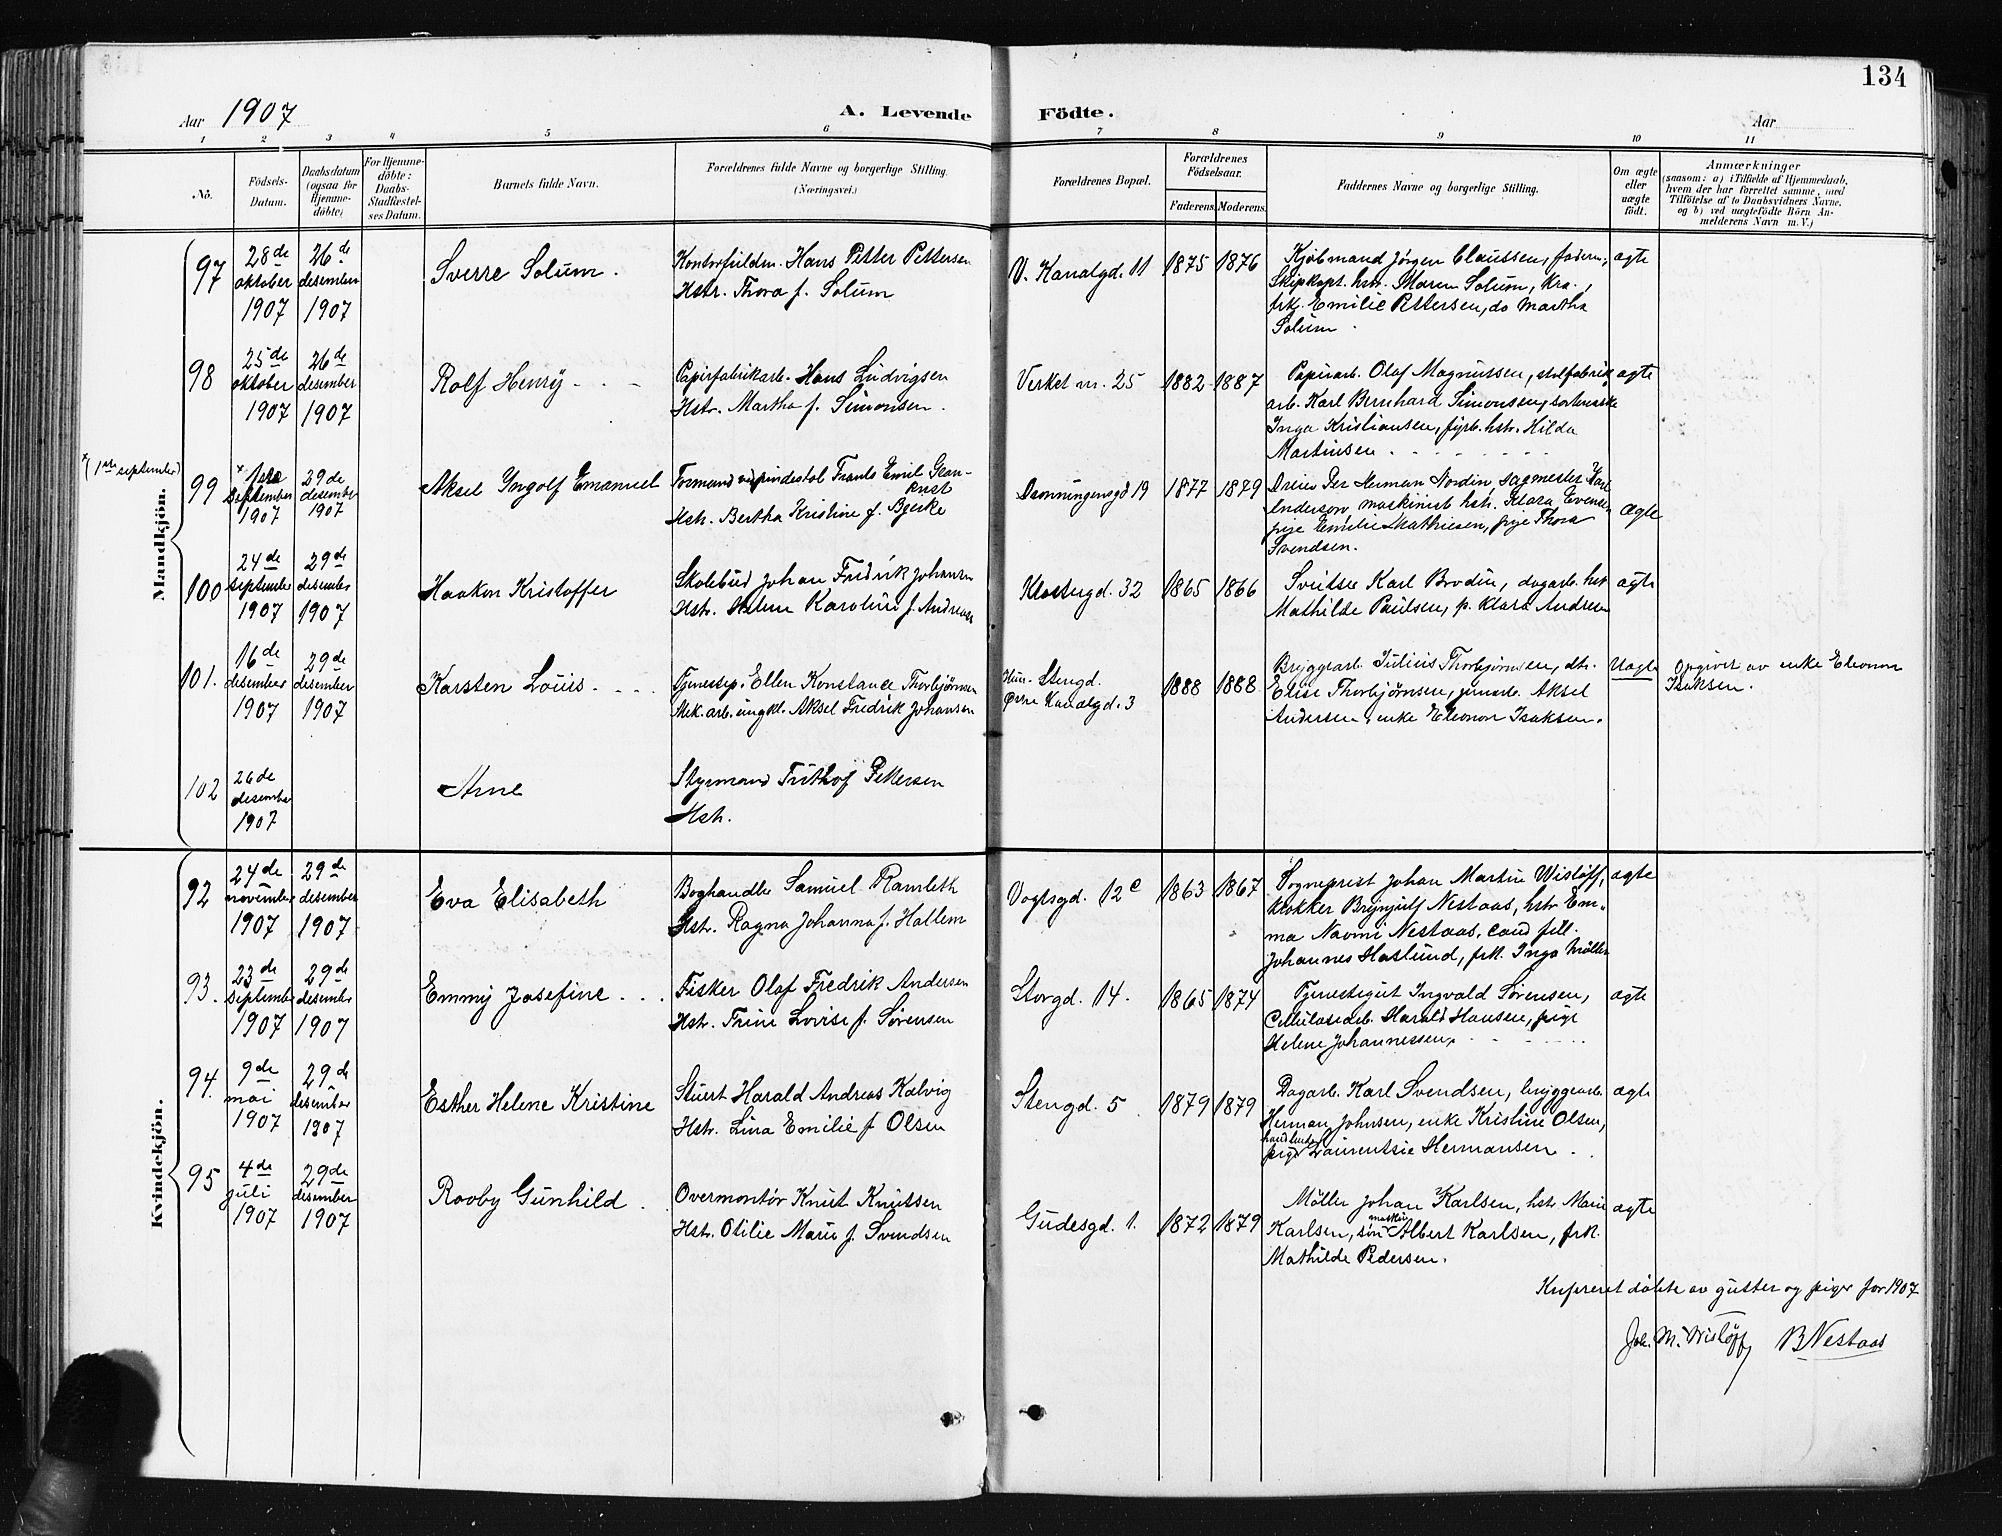 134
Aar 1907
A. Levende
Födte.
Aar
1 2 3 4 5 6 7 8 9 10 11
No.
Födsels-
Datum.
Daabsdatum
(ogsaa for
Hjemme-
döbte)
For Hjemme-
döbte:
Daabs-
Stadfæstel-
ses Datum.
Barnets fulde Navn.
Forældrenes fulde Navne og borgerlige Stilling.
(Næringsvei.)
Forældrenes Bopæl.
Forældrenes
Födselsaar.
Faderens. Moderens.
Faddernes Navne og borgerlige Stilling.
Om ægte
eller
uægte
födt.
Anmærkninger
(saasom: a) i Tilfælde af Hjemmedaab,
hvem der har forrettet samme, med
Tilföielse af to Daabsvidners Navne,
og b) ved uægtefödte Börn An-
melderens Navn m. V.)
Mandkjön.
97
28de
oktober
1907
26de
desember
1907
Sverre Solum.
Kontorfuldm. Hans Petter Pettersen
Hstr. Thora f. Solum
V. Kanalgd. 11
1875 1876
Kjøbmand Jørgen Claussen, faderen,
Skipkapt. hstr. Maren Solum, Kra.,
frk. Emilie Pettersen, do Martha
Solum
ægte
98
25de
oktober
1907
26de
desember
1907
Rolf Henry
Papirfabrikarb. Hans Ludvigsen
Hstr. Martha f. Simonsen.
Verket nr. 25
1882 1887
Papirarb. Olaf Magnussen, stolfabrik
arb. Karl Bernhard Simonsen,
Inga Kristiansen, fyrb. hstr. Hilda
Martinsen
ægte
x (1ste september)
99
x
september
1907
29de
desember
1907
Aksel Yngolf Emanuel
Formand Frants Emil Gran-
Hstr. Bertha Kristine f. Bjerke
Dronningensgd 19
1877 1879
Dreier Per Herman Nordin, sagmester Karl
Anderson, maskinist hstr. Klara Evensen
pige Emilie Mathiesen, pige Thora
Svendsen.
ægte
100
24de
september
1907
29de
desember
1907
Haakon Kristoffer
Skolebud Johan Fredrik Johansen
Hstr. Helene Karoline f. Andreasen
Klostergd. 32
1865 1866
Sveitser Karl Brodin, dagarb. hstr
Mathilde Paulsen, p. Klara Andresen
ægte
101.
16de
desember
1907
29de
desember
1907
Karsten Louis
Tjenestep. Ellen Konstance Thorbjørnsen
Mek. arb. ungkl. Aksel Fredrik Johansen
Hun - Stengd.
Øvre Kanalgd. 3
1888 1888
Bryggearb. Julius Thorbjørnsen, dtr.
Elise Thorbjørnsen, jernarb. Aksel
Andersen, enke Eleonor Isaksen.
Uægte
Opgivet av enke Eleonor
Isaksen.
102
26de
desember
1907
Arne
Styrmand Frithof Pettersen
Hstr.
Kvindekjön.
92
24de
november
1907
29de
desember
1907
Eva Elisabeth
Boghandler Samuel Ramleth
Hstr. Ragna Johanna f. Hallem
Vogtsgd. 12c
1863 1867
Sogneprest Johan Martin Wisløff,
klokker Brynjulf Nestaas, hstr Em-
ma Naomi Nestaas, cand fill.
Johannes Haslund, frk. Inga Møller
ægte
93.
23de
september
1907
29de
desember
1907
Emmy Josefine
Fisker Olaf Fredrik Andersen
Hstr. Trine Lovise f. Sørensen
Storgd. 14.
1865 1874
Tjenestegut Ingvald Sørensen,
Cellulosearb. Harald Hansen, pige
Helene Johannessen,
ægte
94.
9de
mai
1907
29de
desember
1907
Esther Helene Kristine
Stuert Harald Andreas Kalvig
Hstr. Lina Emilie f Olsen
Stengd. 5
1879 1879
Dagarb. Karl Svendsen, bryggearb.
Herman Johnsen, enke Kristine Olsen,
pige Laurentsie Hermansen
ægte
95
4de
juli
1907
29de
desember
1907
Rooby Gunhild
Overmontør Knut Knutsen
Hstr. Otilie Marie f. Svendsen
Gudesgd. 1.
1872 1879
Møller Johan Karlsen, hstr Marie
Karlsen, søn Albert Karlsen, frk.
Mathilde Pedersen.
ægte
døbte av gutter og piger for 1907
Joh. M. Wisløff B Nestaas